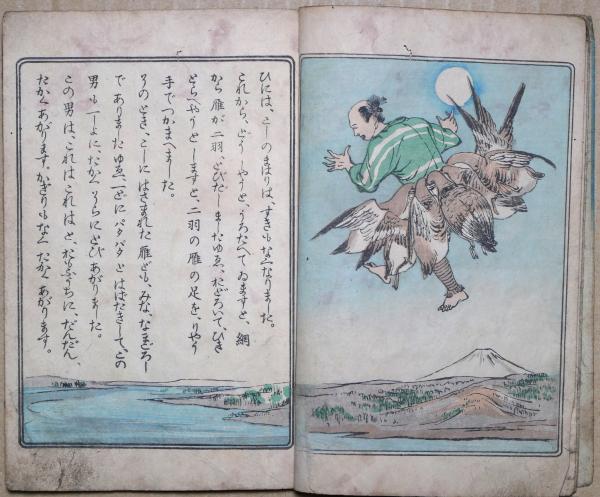 ひには、こしのまはりは、すきもなくなりました。
これから、どうしやうと、うろたへてゐますと、網
から雁が二羽、とびだしましたゆゑ、おどろいて、ひき
とらへやうとしますと、二羽の雁の足を、りやう
手でつかまへました。
そのとき、こしにはさまれた雁ども、みな、なまごろし
でありましたゆゑ、一どにバタバタとはばたきして、この
男も一しよに、たかくそらにとびあがりました。
この男は、これはこれはと、おもふうちに、だんだん、
たかくあがります。かぎりもなくたかくあがります。